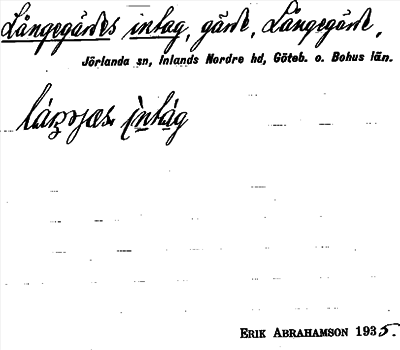 Långegärdes intag, gärde, Långegärde,
Jörlanda sn, Inlands Nordre hd, Göteb. o. Bohus län.
ìntág
ERIK ABRAHAMSON 1935.